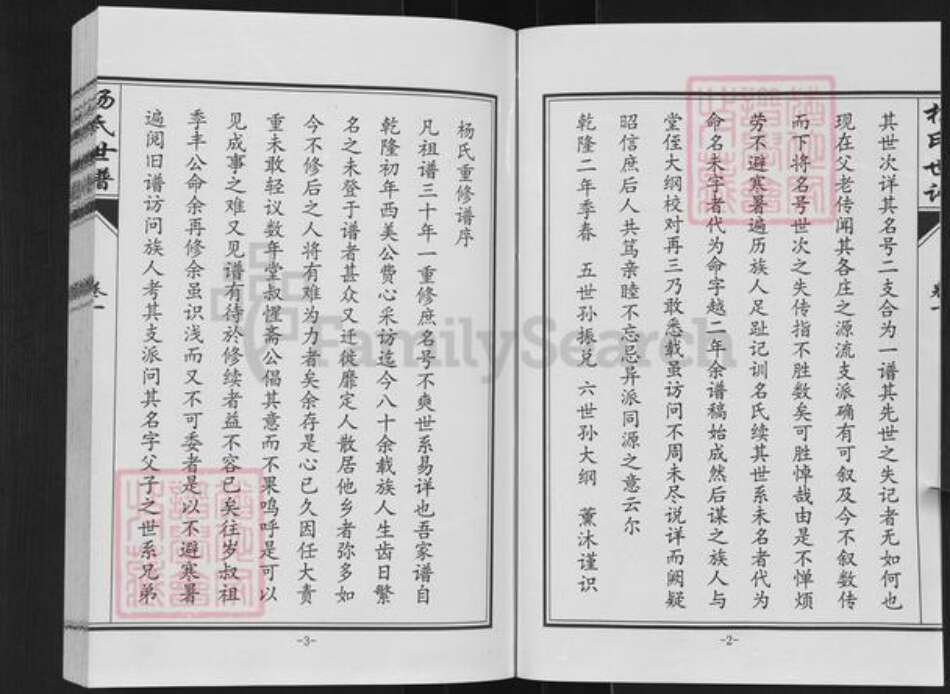 其世次详其名号二支合为一谱其先世之失记者无如何也
现在父老传闻其各庄之源流支派确有可叙及今不叙数传
而下将名号世次之失传指不胜数矣可胜悼哉由是不惮烦
劳不避寒暑遍历族人足趾记训名氏续其世系未名者代为
命名未字者代为命字越二年余谱稿始成然后谋之族人与
堂侄大纲校对再三乃敢悉载虽访问不周未尽说详而阙疑
昭信庶后人共笃亲睦不忘忌异派同源之意云尔
乾隆二年季春 五世孙振兑 六世孙大纲 薰沐谨识
-2-
杨氏世谱
卷一
杨氏重修谱序
凡祖谱三十年一重修庶名号不爽世系易详也吾家谱自
乾隆初年西美公费心采访迄今八十余载族人生齿日繁
名之未登于谱者甚众又迁徙靡定人散居他乡者弥多如
今不修后之人将有难为力者矣余存是心已久因任大责
重未敢轻议数年堂叔惺斋公倡其意而不果呜呼是可以
见成事之难又见谱有待於修续者益不容已矣往岁叔祖
季丰公命余再修余虽识浅而又不可委者是以不避寒暑
遍阅旧谱访问族人考其支派问其名字父子之世系兄弟
杨氏世谱
卷一
-3-
FamilySearch